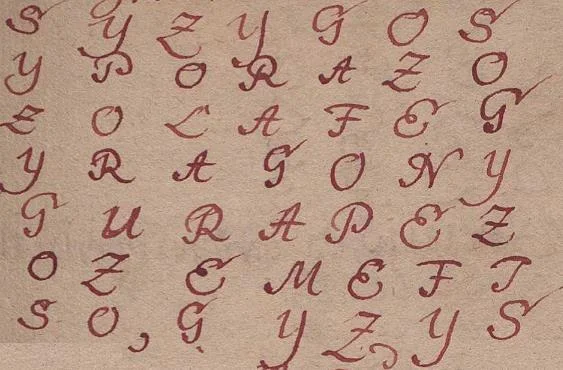 S Y Z Y G O S
Y P O R A Z O
Z O L A F E G
Y R A G O N Y
G U R A P E Z
O Z E M E F T
S O, G. Y Z, Y S